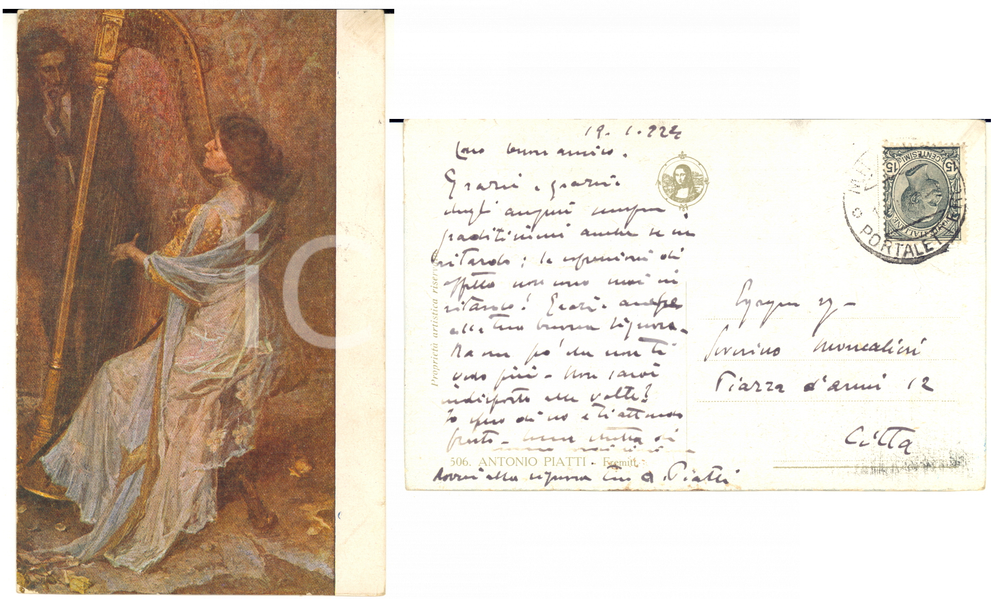 19. 1. 924
Caro buon amico,
Grazie e grazie
degli auguri sempre
graditissimi anche se in
ritardo; le espressioni di
affetto non sono mai in
ritardo! Grazie anche
alla tua buona signora.
Ma un po' che non ti
vedo più - Non sarai
indisposto alle volte?
Io spero di no e ti attendo
presto -
506. ANTONIO PIATTI - Eremiti
alla signora A. Piatti
Proprietà artistica riserv
CENTESIMI 15
PORTALETTERE
Egregio Sig
Severino Moncalisi
Piazza d'armi 12
Città